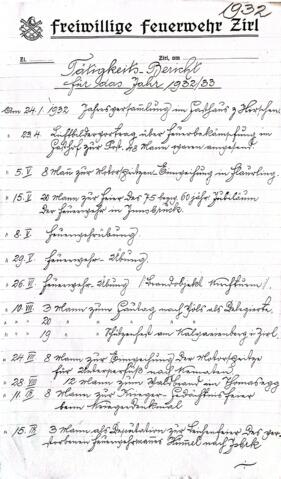 1932
Freiwillige Feuerwehr Zirl
Zl. Zirl, am
Tätigkeits-Bericht
für das Jahr 1932/33
Am 24.1.1932 Jahresversammlung im Gasthaus z. Hirschen.
" 23.4. Lichtbildervortrag über Feuerbekämpfung im
Gasthof zur Post. 48 Mann waren anwesend.
" 5.V. 8 Mann zur Motorspritzen Einweihung in Flaurling.
" 15.V. 20 Mann zur Feier des 75 bezw. 60 jähr. Jubiläum
der Feuerwehr in Innsbruck.
" 8.V. Feuerwehrübung
" 29.V. Feuerwehr-Übung
" 26.V. Feuerwehr-Übung (Brandobjekt Kirchturm).
" 10.VII. 3 Mann zum Gautag nach als Delegierte.
" " 20 "
" " 19 " Schützenfest am Kalvarienberg-Zirl.
" 24.VII. 8 Mann zur Einweihung der Motorspritze
für Unterperfuß nach Kematen
" 28.VIII. 12 Mann zum Waldbrand in
" 11.IX. 8 Mann zur Krieger-Gedächtnisfeier
beim Kriegerdenkmal
" 15.IX. 3 Mann als Deputation zur Leichenfeier des ver-
storbenen Feuerwehrmannes nach Ibk